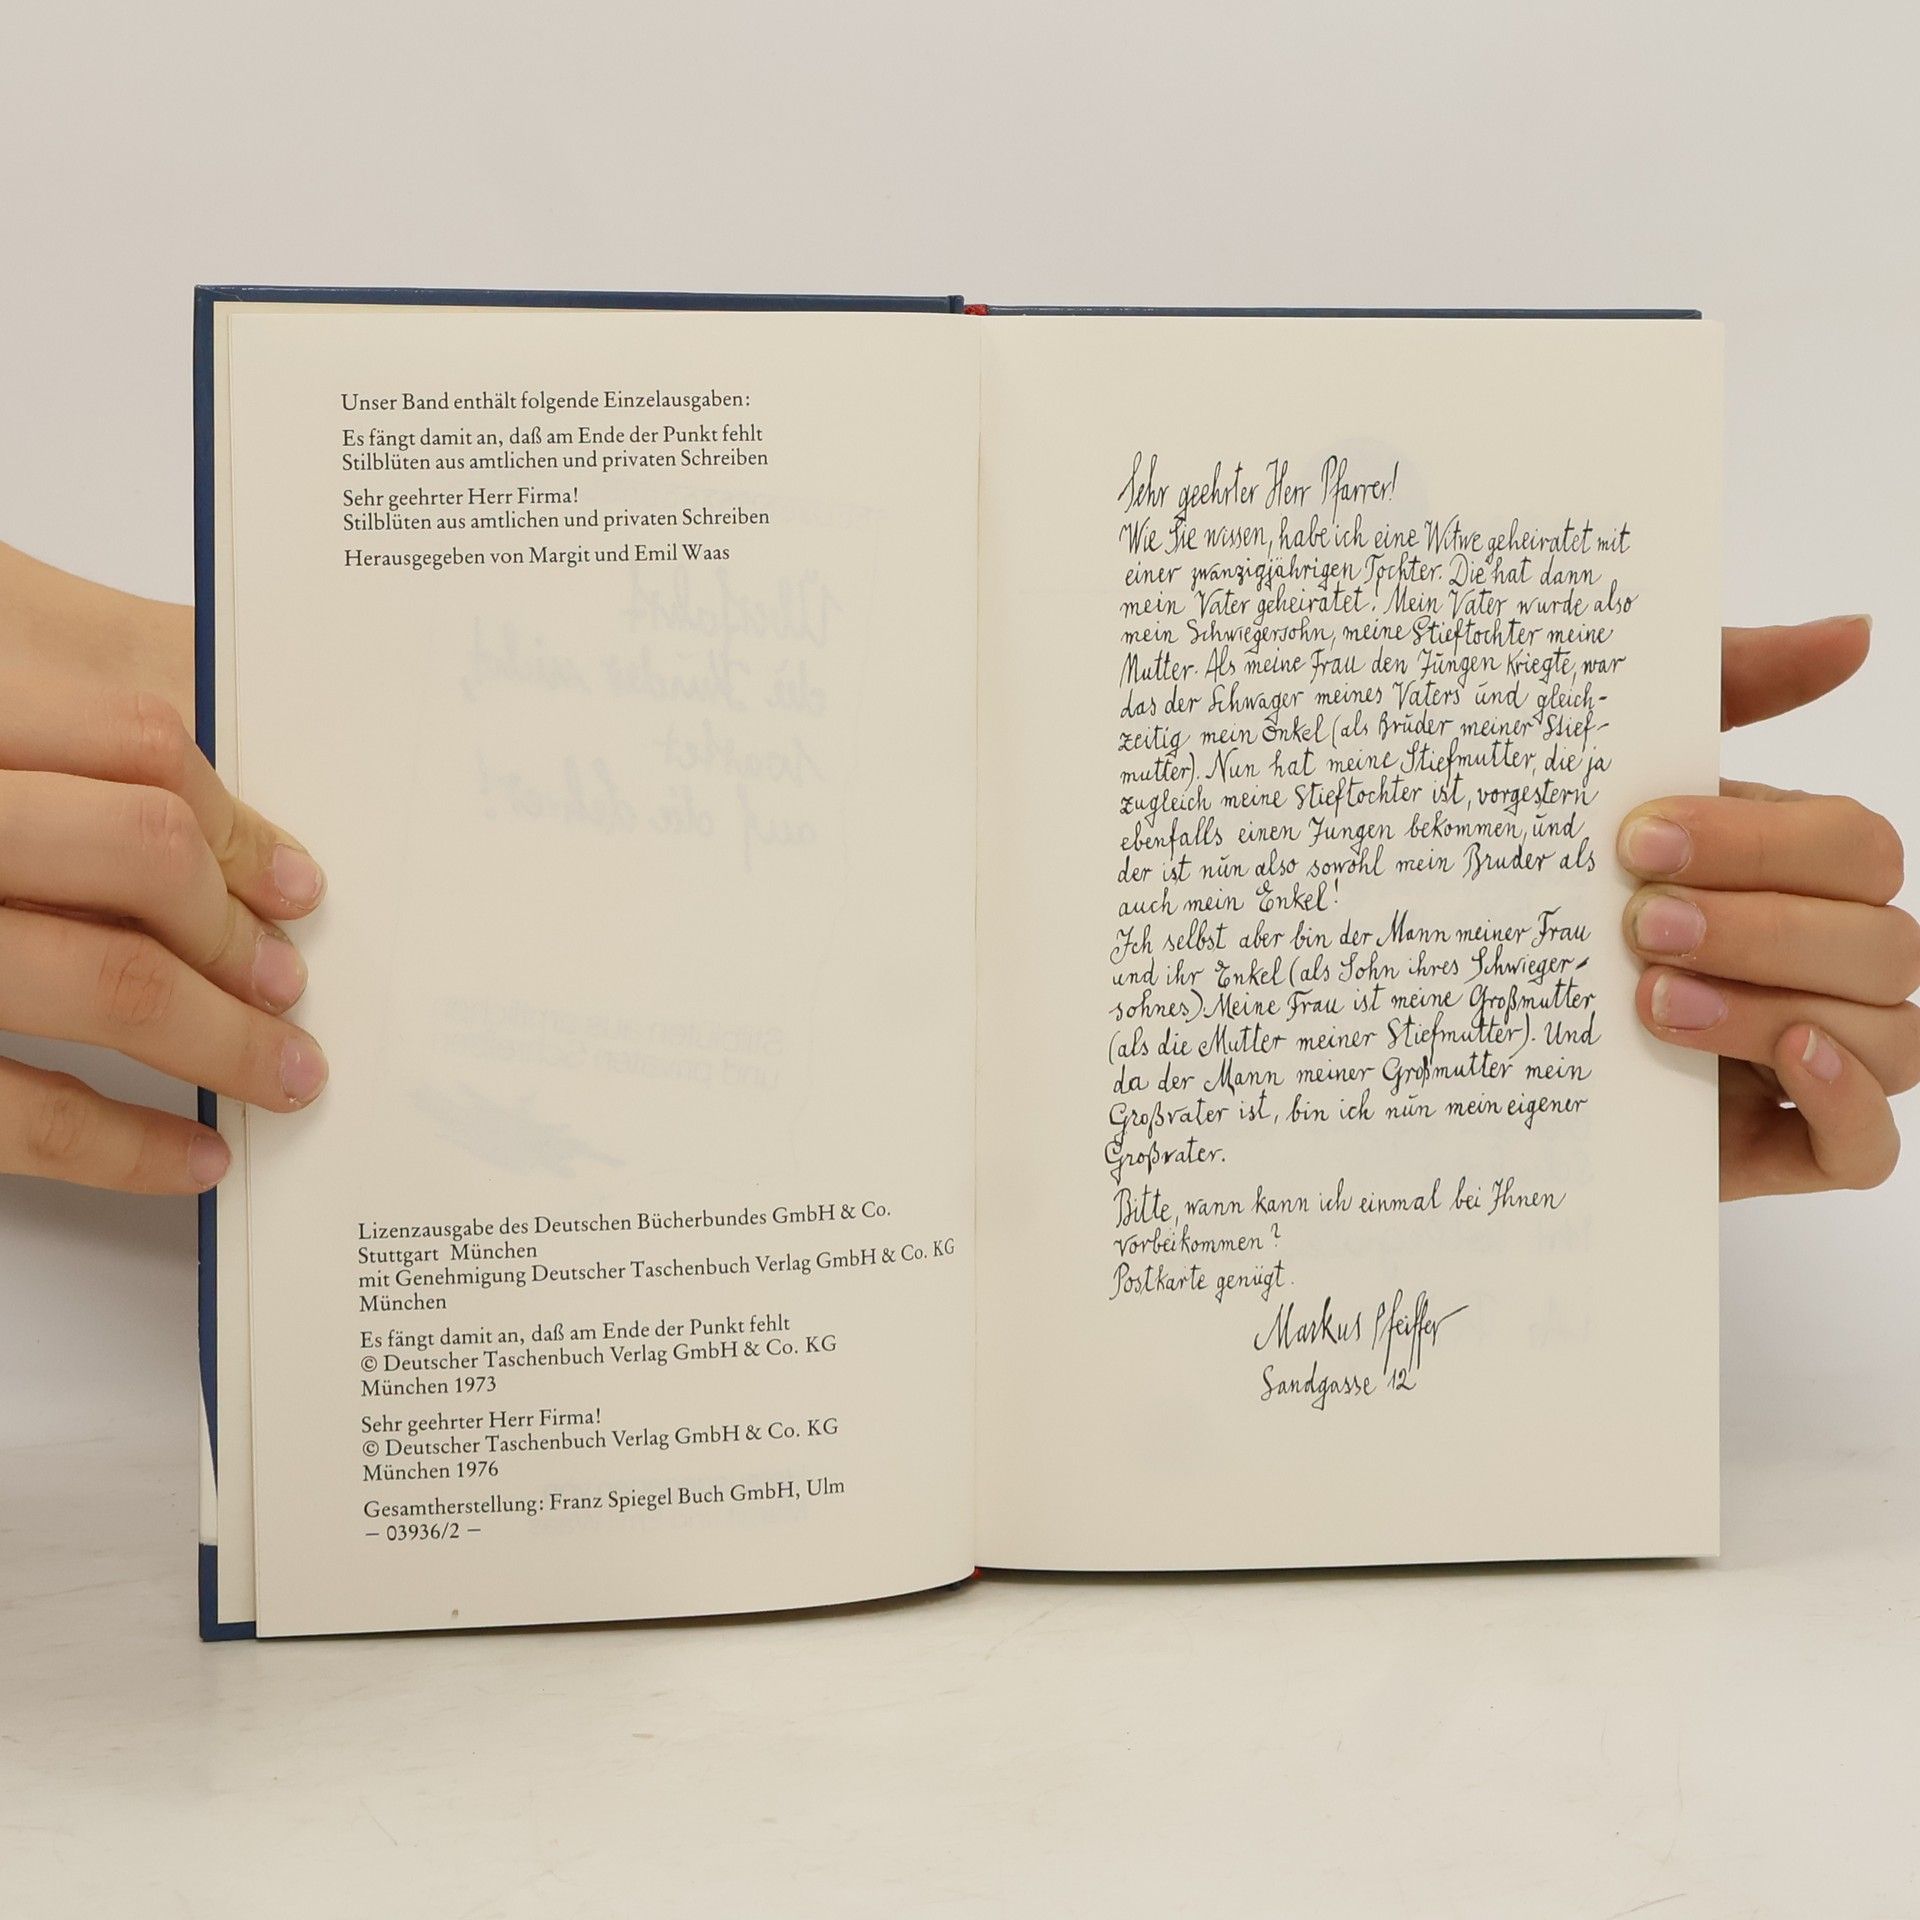 Unser Band enthält folgende Einzelausgaben:
Es fängt damit an, daß am Ende der Punkt fehlt
Stilblüten aus amtlichen und privaten Schreiben
Sehr geehrter Herr Firma!
Stilblüten aus amtlichen und privaten Schreiben
Herausgegeben von Margit und Emil Waas
Lizenzausgabe des Deutschen Bücherbundes GmbH & Co.
Stuttgart München
mit Genehmigung Deutscher Taschenbuch Verlag GmbH & Co. KG
München
Es fängt damit an, daß am Ende der Punkt fehlt
© Deutscher Taschenbuch Verlag GmbH & Co. KG
München 1973
Sehr geehrter Herr Firma!
© Deutscher Taschenbuch Verlag GmbH & Co. KG
München 1976
Gesamtherstellung: Franz Spiegel Buch GmbH, Ulm
– 03936/2 –
Sehr geehrter Herr Pfarrer!
Wie Sie wissen, habe ich eine Witwe geheiratet mit
einer zwanzigjährigen Tochter. Die hat dann
mein Vater geheiratet. Mein Vater wurde also
mein Schwiegersohn, meine Stieftochter meine
Mutter. Als meine Frau den Jungen kriegte, war
das der Schwager meines Vaters und gleich-
zeitig mein Onkel (als Bruder meiner Stief-
mutter). Nun hat meine Stiefmutter, die ja
zugleich meine Stieftochter ist, vorgestern
ebenfalls einen Jungen bekommen, und
der ist nun also sowohl mein Bruder als
auch mein Enkel!
Ich selbst aber bin der Mann meiner Frau
und ihr Enkel (als Sohn ihres Schwieger-
sohnes). Meine Frau ist meine Großmutter
(als die Mutter meiner Stiefmutter). Und
da der Mann meiner Großmutter mein
Großvater ist, bin ich nun mein eigener
Großvater.
Bitte, wann kann ich einmal bei Ihnen
vorbeikommen?
Postkarte genügt.
Markus Pfeiffer
Sandgasse 12